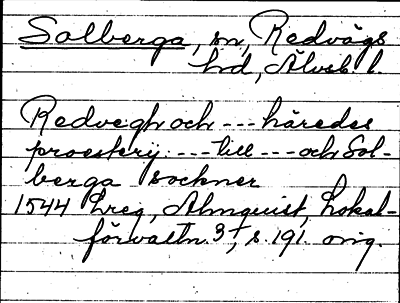 Solberga, sn, Redvägs
hd, Älvsb. l.
Redvegh och --- häredes
proesterij --- till --- och Sol-
berga sockner
1544 Lreg, Almquist, Lokal-
förvaltn. 3, s. 191. orig.